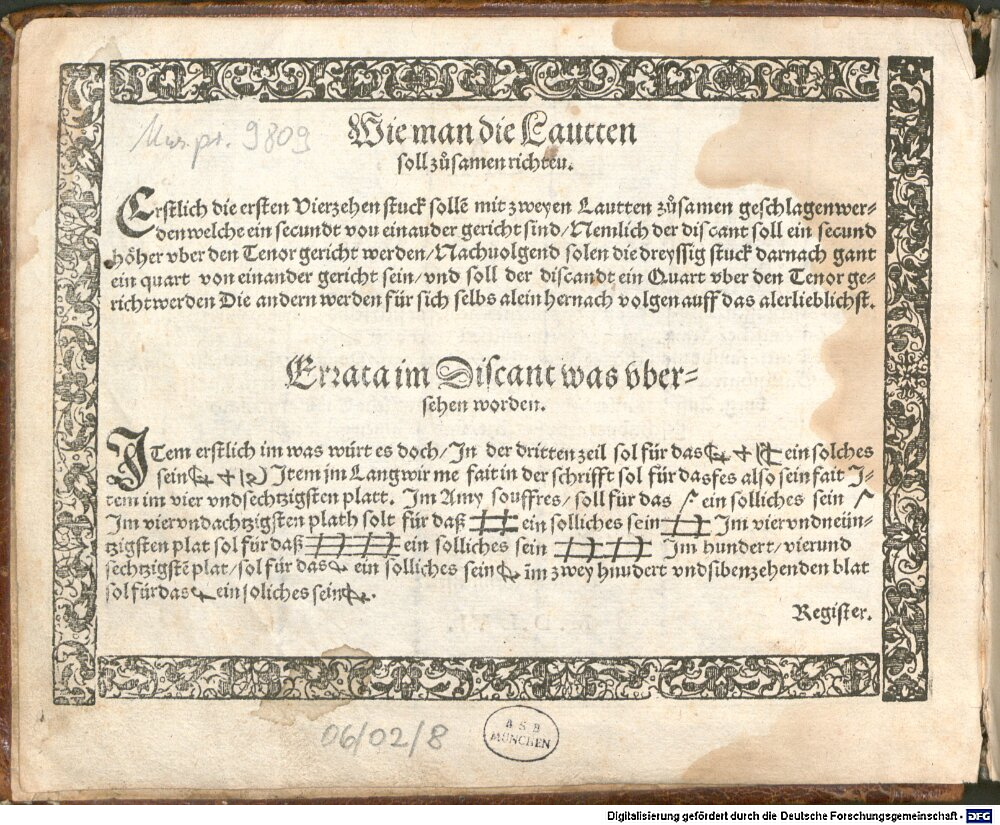 Mus.pr. 9809
Wie man die Lautten
soll zůsamen richten.
Erstlich die ersten Vierzehen stuck sollē mit zweyen Lautten zůsamen geschlagen wer-
den welche ein secundt vou einauder gericht sind/Nemlich der discant soll ein secund
höher vber den Tenor gericht werden/Nachuolgend solen die dreyssig stuck darnach gant
ein quart von einander gericht sein/vnd soll der discandt ein Quart vber den Tenor ge-
richt werden Die andern werden für sich selbs alein hernach volgen auff das alerlieblichst.
Errata im Discant was vber-
sehen worden.
Item erstlich im was würt es doch/In der dritten zeil sol für das ein solches
sein Item im Langwir me fait in der schrifft sol für das fes also sein fait I-
tem im vier vndsechtzigsten platt. Im Amy souffres/soll für das ein solliches sein
Im viervndachtzigsten plath solt für daß ein solliches sein Im viervndneün-
tzigsten plat sol für daß ein solliches sein Im hundert/vierund
sechtzigstē plat/sol für das ein solliches sein im zwey hnudert vndsibenzehenden blat
sol für das ein soliches sein.
Register.
06/02/8
B S B
MÜNCHEN
Digitalisierung gefördert durch die Deutsche Forschungsgemeinschaft - DFG